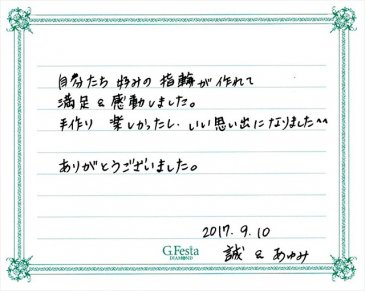 自分たち 好みの 指輪が 作れて
満足&感動しました。
手作り 楽しかったし、いい思い出になりました^^
ありがとうございました。
2017.9.10
誠 & あゆみ
G.Festa
DIAMOND